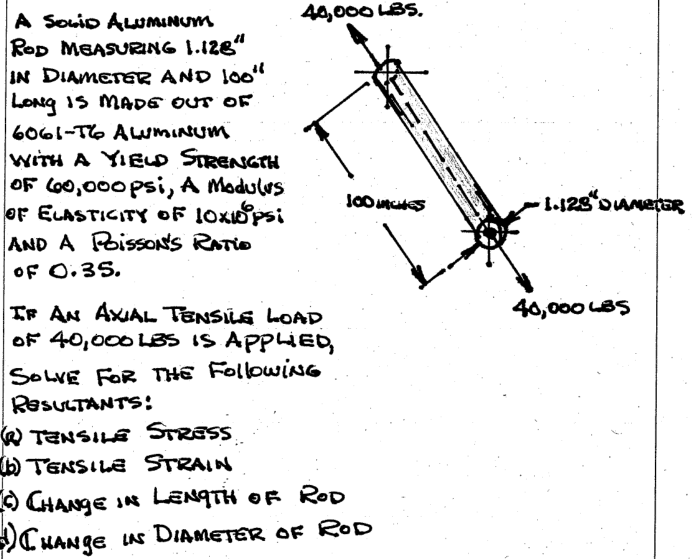 A SOLID ALUMINUM
ROD MEASURING 1.128"
IN DIAMETER AND 100"
LONG IS MADE OUT OF
6061-T6 ALUMINUM
WITH A YIELD STRENGTH
OF 60,000 psi, A MODULUS
OF ELASTICITY OF 10x10⁶ psi
AND A POISSON'S RATIO
OF 0.35.
IF AN AXIAL TENSILE LOAD
OF 40,000 LBS IS APPLIED,
SOLVE FOR THE FOLLOWING
RESULTANTS:
(a) TENSILE STRESS
(b) TENSILE STRAIN
(c) CHANGE IN LENGTH OF ROD
d) CHANGE IN DIAMETER OF ROD
40,000 LBS.
100 INCHES
1.128" DIAMETER
40,000 LBS